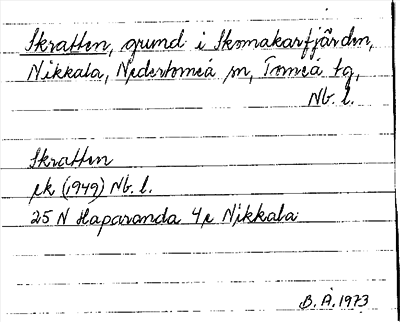 Skratten, grund i Skomakarfjärden,
Nikkala, Nedertorneå sn, Torneå tg,
Nb. l.
Skratten
ek (1949) Nb. l.
25 N Haparanda 4e Nikkala
B. Å. 1973